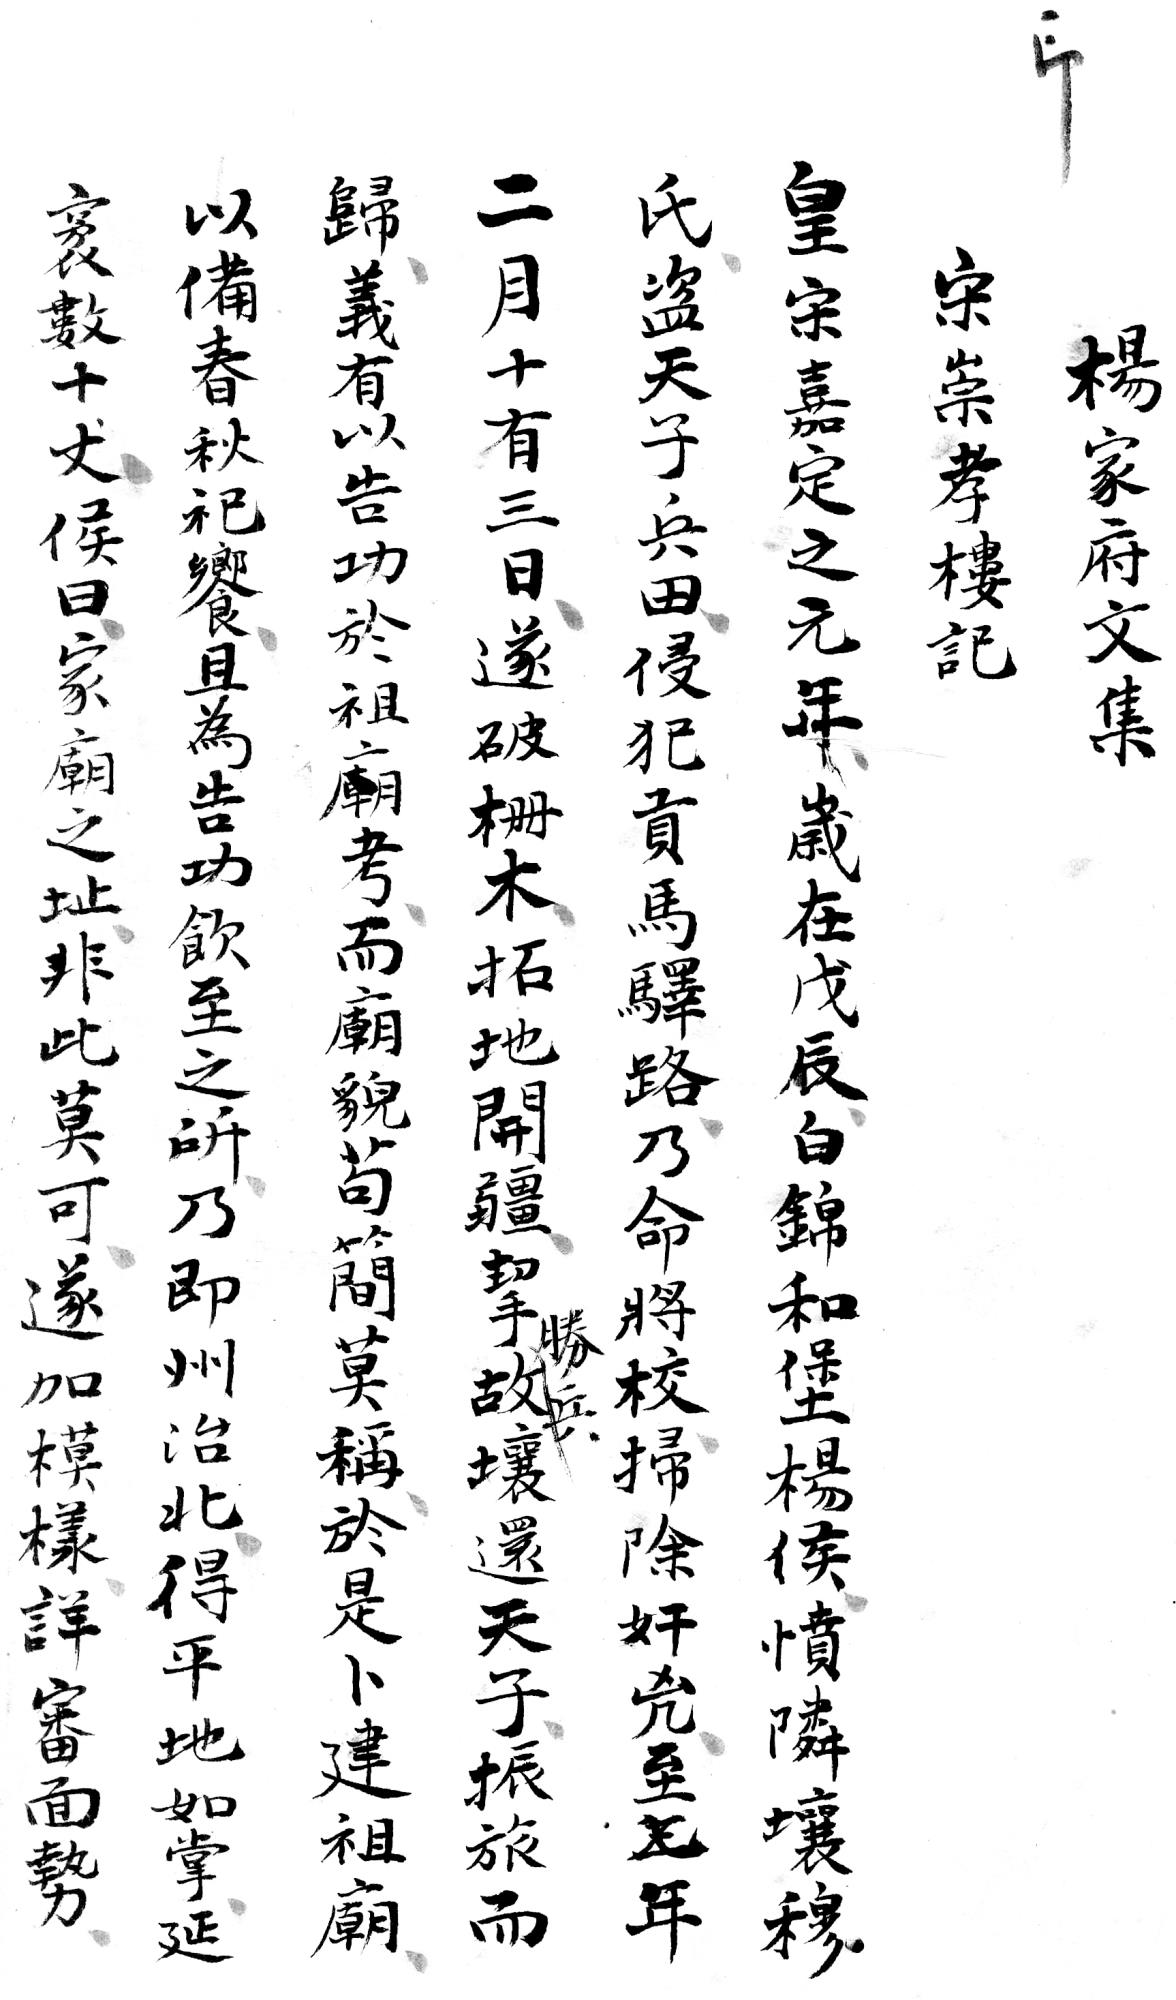 印
楊家府文集
宋崇孝樓記
皇宋嘉定之元年、歲在戊辰、白錦和堡楊侯、憤隣壤穆
氏、盗天子兵田、侵犯貢馬驛路、乃命將校、掃除奸兇、至元年
二月十有三日、遂破柵木、拓地開疆、挈故壤還天子、振旅而
勝兵
歸、義有以告功於祖廟考、而廟貌苟簡莫稱、於是卜建祖廟、
以備春秋祀饗、且為告功飲至之所、乃即州治北、得平地如掌、延
袤數十丈、侯曰、家廟之址、非此莫可、遂加模樣、詳審面勢、